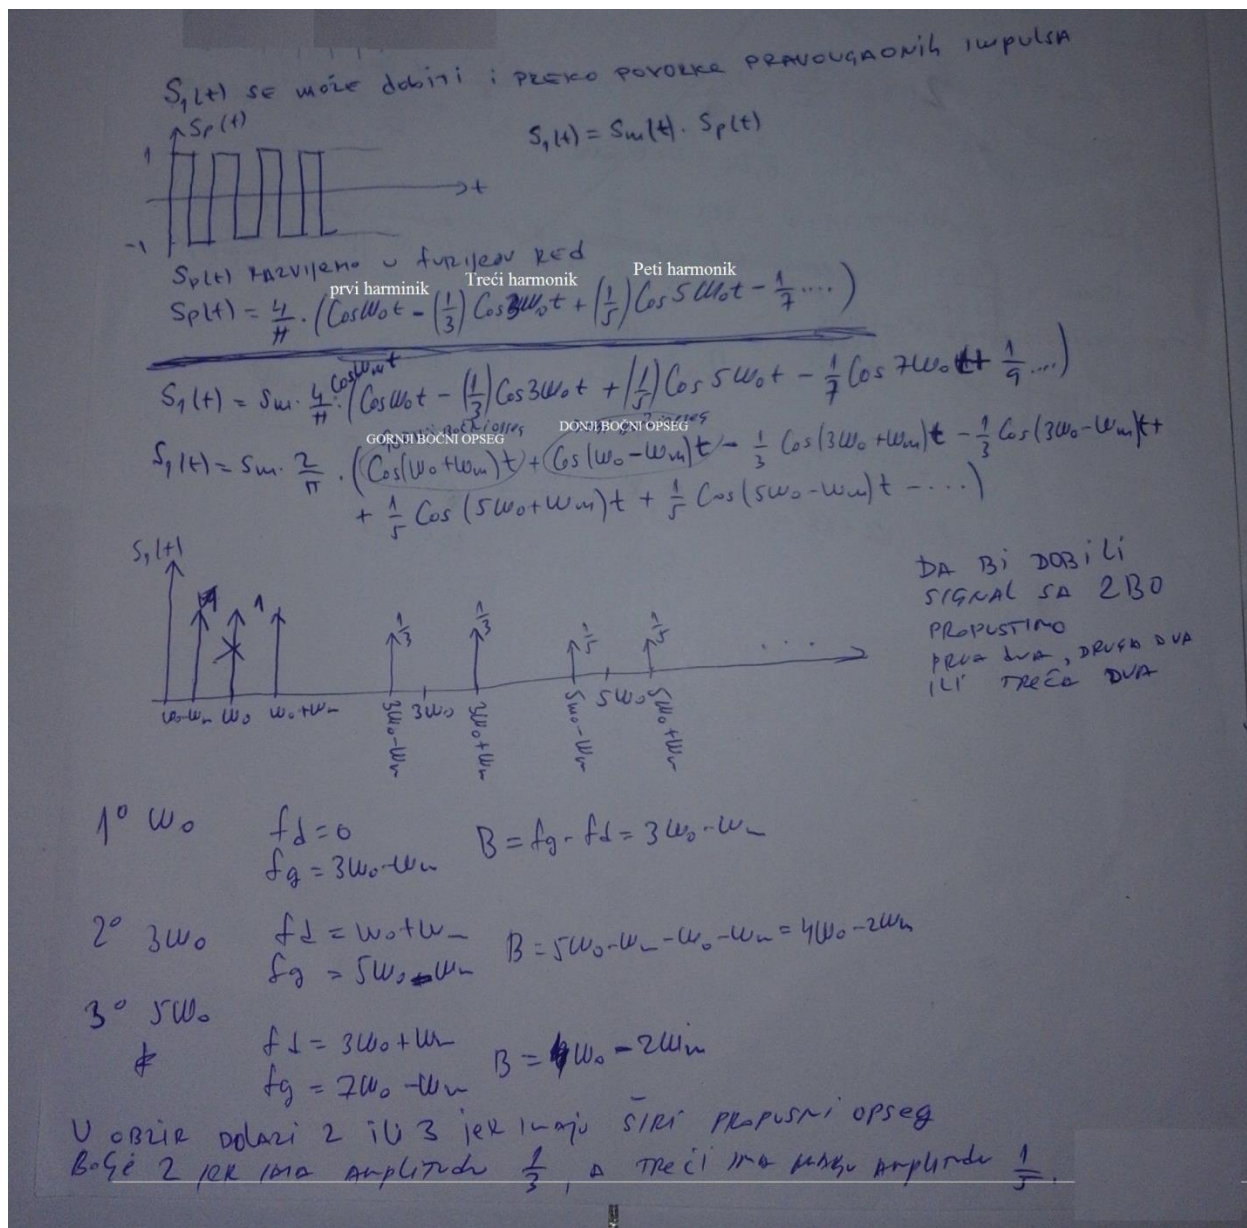 S₁(t) SE može dobiti i PREKO POVORKE PRAVOUGAONIH IMPULSA
Sp(t)
S₁(t) = Sm(t) · Sp(t)
1
t
-1
Sp(t) RAZVIJEMO U furijeov RED
prvi harminik Treći harmonik Peti harmonik
Sp(t) = 4/π · (Cosω₀t - (1/3) Cos3ω₀t + (1/5) Cos5ω₀t - 1/7 ....)
S₁(t) = Sm · 4/π · Cosωmt (Cosω₀t - (1/3) Cos3ω₀t + (1/5) Cos5ω₀t - 1/7 Cos7ω₀t + 1/9 ...)
GORNJI BOČNI OPSEG DONJI BOČNI OPSEG
S₁(t) = Sm · 2/π · (Cos(ω₀+ωm)t + Cos(ω₀-ωm)t - 1/3 Cos(3ω₀+ωm)t - 1/3 Cos(3ω₀-ωm)t +
+ 1/5 Cos(5ω₀+ωm)t + 1/5 Cos(5ω₀-ωm)t - ....)
S₁(t)
1 1/3 1/3 1/5 1/5 ...
ω₀-ωm ω₀ ω₀+ωm 3ω₀-ωm 3ω₀ 3ω₀+ωm 5ω₀-ωm 5ω₀ 5ω₀+ωm
DA BI DOBILI
SIGNAL SA 2BO
PROPUSTIMO
PRVA DVA, DRUGA DVA
ILI TREĆA DVA
1° ω₀ fd = 0 B = fg - fd = 3ω₀-ωm
fg = 3ω₀-ωm
2° 3ω₀ fd = ω₀+ωm B = 5ω₀-ωm-ω₀-ωm = 4ω₀-2ωm
fg = 5ω₀-ωm
3° 5ω₀
fd = 3ω₀+ωm B = 4ω₀-2ωm
fg = 7ω₀-ωm
U OBZIR DOLAZI 2 ILI 3 jER imaju ŠIRI PROPUSNI OPSEG
BOLjE 2 jER IMA AMPLITUDU 1/3, A TREĆI IMA MANju AMPLITUDU 1/5.